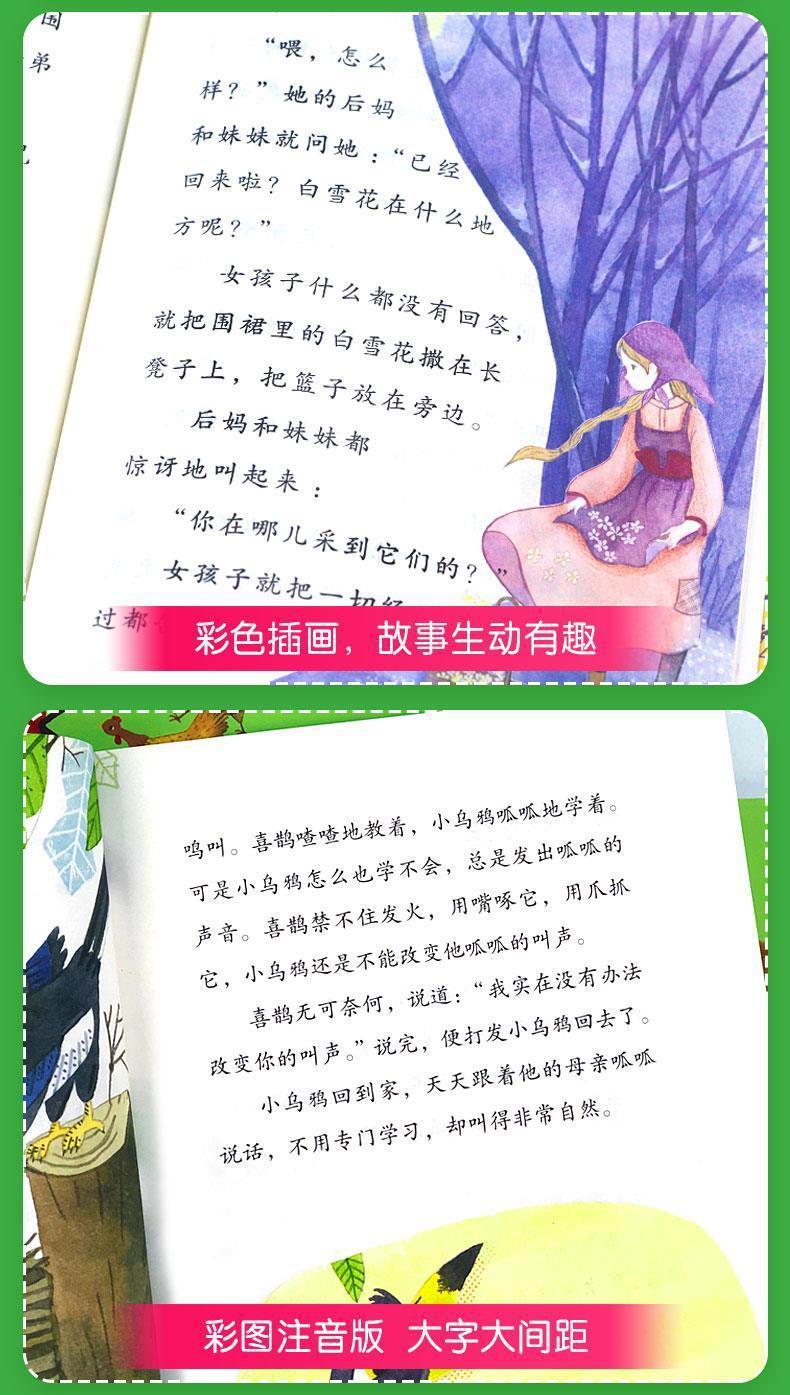 围
弟
“喂，怎么
样？”她的后妈
和妹妹就问她：“已经
回来啦？白雪花在什么地
方呢？”
女孩子什么都没有回答，
就把围裙里的白雪花撒在长
凳子上，把篮子放在旁边。
后妈和妹妹都
惊讶地叫起来：
“你在哪儿采到它们的？”
女孩子就把一切经
过都
彩色插画，故事生动有趣
鸣叫。喜鹊喳喳地教着，小乌鸦呱呱地学着。
可是小乌鸦怎么也学不会，总是发出呱呱的
声音。喜鹊禁不住发火，用嘴啄它，用爪抓
它，小乌鸦还是不能改变他呱呱的叫声。
喜鹊无可奈何，说道：“我实在没有办法
改变你的叫声。”说完，便打发小乌鸦回去了。
小乌鸦回到家，天天跟着他的母亲呱呱
说话，不用专门学习，却叫得非常自然。
彩图注音版 大字大间距